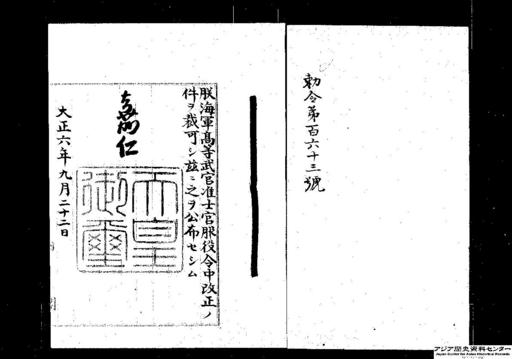 勅令第百六十三號
朕海軍高等武官准士官服役令中改正ノ
件ヲ裁可シ茲ニ之ヲ公布セシム
嘉仁
天皇
御璽
大正六年九月二十二日
アジア歴史資料センター
Japan Center for Asian Historical Records